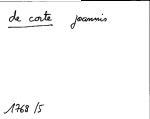 de corte joannis
1768/5